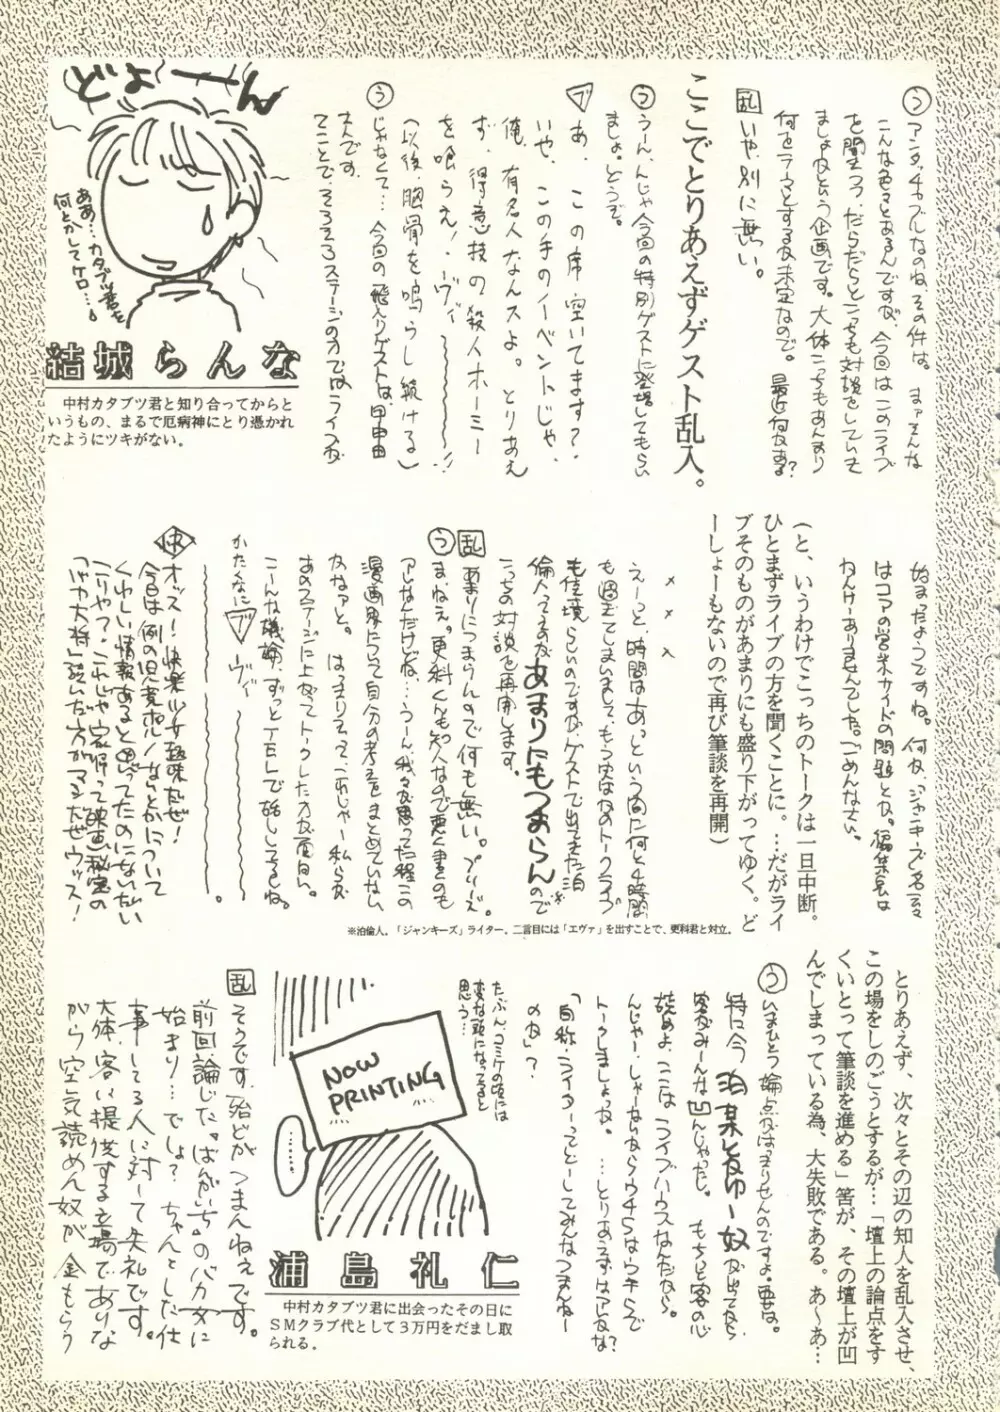 う アンタッチャブルなのね、その件は。まァそんな
こんな色々とあるんですが、今回はこのライブ
を聞きつつ、だらだらとこっちも対談をしていき
ましょうという企画です。大体こっちもあんまり
何をテーマとするか未定なので。最近何かある?
乱 いや、別に無い。
ここでとりあえずゲスト乱入。
う うーん、んじゃ今回の特別ゲストに登場してもらい
ましょ。どうぞ。
ブ あ、この席空いてます?
いや、この手のイベントじゃ、
俺、有名人なんスよ。とりあえ
ず、得意技の殺人ホーミー
を喰らえ!ヴィ〜〜〜!!
(以後、胸骨を鳴らし続ける)
う じゃなくて…今回の飛入りゲストは、甲申由
さんです。
てことで、そろそろステージの方ではライブが
どよーん
ああ…カタブツ君を
何とかしてケロ…。
結城らんな
中村カタブツ君と知り合ってからと
いうもの、まるで厄病神にとり憑かれ
たようにツキがない。
始まったようですね。何か、ジャンキーズ名云々
はコアの営業サイドの問題とか。編集長は
わんけーありませんでした。ごめんなさい。
(と、いうわけでこっちのトークは一旦中断。
ひとまずライブの方を聞くことに。…だがライ
ブそのものがあまりにも盛り下がってゆく。ど
ーしょーもないので再び筆談を再開)
× × ×
えーっと、時間はあっという間に何と4時間
も過ぎてしまいまして、もうほとんどのトークライブ
も佳境らしいのですが、ゲストで出てきた泊
倫人ってのがあまりにもつまらんので※
こっちの対談を再開します。
乱 あまりにつまらんので何も無い。プリーズ。
う まねえ。更科くんも知人なので悪く書くのも
アレなんだけどね…うーん、我々が思ってた程この
漫画界について自分の考えをまとめていない
かなァと。はっきりそって、これじゃー私らが
あのステージに上がってトークした方が面白い。
こーんな議論、ずっとTELで話してるしね。
かたくなに ブ ヴィ〜〜〜
〜〜〜。
快 オッス!快楽少女趣味だぜ!
今日は例の児童ポルノなんとかについて
くわしい情報あると思ってたのにないたい
こりゃア・これじゃ家帰って映画秘宝の
「つけや大将」読いだ方がマシだぜウッス!
※泊倫人。「ジャンキーズ」ライター。二言目には「エヴァ」を出すことで、更科君と対立。
とりあえず、次々とその辺の知人を乱入させ、
この場をしのごうとするが…「壇上の論点をす
くいとって筆談を進める」筈が、その壇上が凹
んでしまっている為、大失敗である。あ〜あ…
う いまひとつ論点がはっきりせんのですよ。要は。
特に今泊某とかゆー奴が出てから
客がみーんな凹んじゃったし。もちっと客の心
読めよ、ここはライブハウスなんだから。
んじゃー、しゃーないからウチらはウチらで
トークしましょっか。…とりあえずはアレかな?
「自称・ライターってどーしてみんなつまんねー
のか」?
たぶん、コミケの頃には
変な頭になってると
思う…
NOW
PRINTING
……
浦島礼仁
中村カタブツ君に出会ったその日に
SMクラブ代として3万円をだまし取
られる。
乱 そうです、殆どがつまんねぇです。
前回論じた「ばんがいち」のバカ女に
始まり…でしょ?ちゃんとした仕
事してる人に対して失礼です。
大体、客に提供する立場でありな
がら空気読めん奴が金もらう